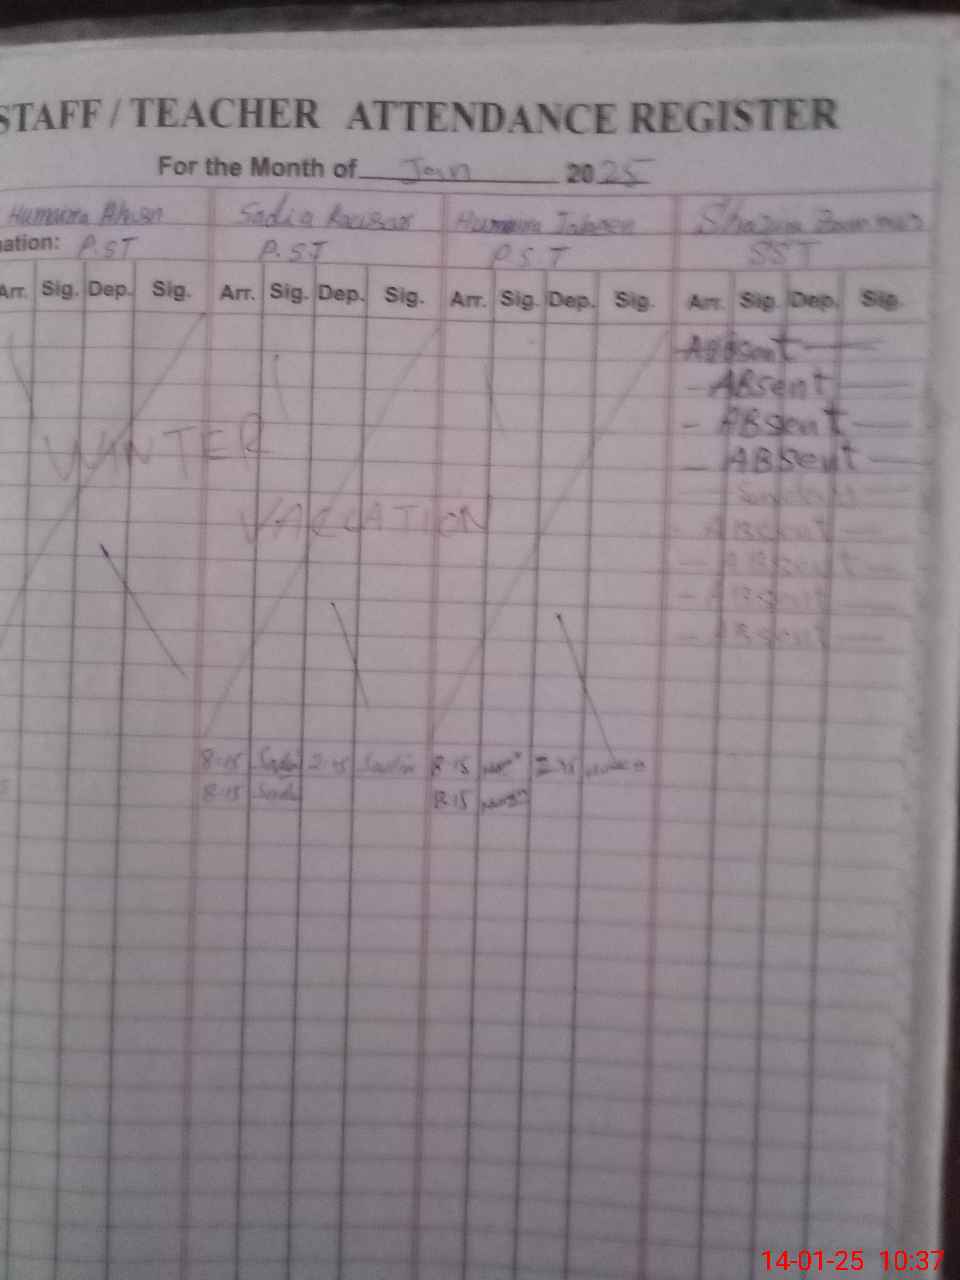 STAFF / TEACHER ATTENDANCE REGISTER
For the Month of Jan 2025
Humaira Sadia Humaira
ation: P.ST P.ST P.S.T SST
Arr. Sig. Dep. Sig. Arr. Sig. Dep. Sig. Arr. Sig. Dep. Sig. Arr. Sig. Dep. Sig.
ABsent
- ABsent
- ABsent
WINTER - ABsent
Sunday
VACCATION - ABsent
- ABsent
- ABsent
- ABsent
8:15 Sadia 2:45 Sadia 8:15 2:45
8:15 Sadia 8:15
14-01-25 10:37